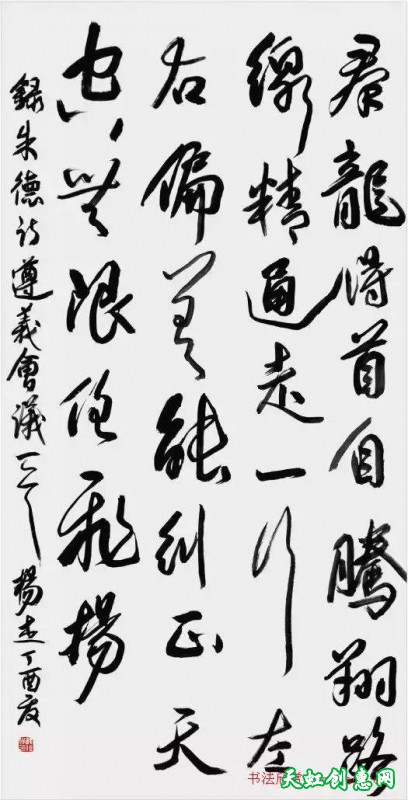 羣龍得首自騰翔路
線精通走一行左
右偏差能糾正天
空無限任飛揚
録朱德詩遵義會議一首 楊 丁酉夏
书法
天虹创惠网